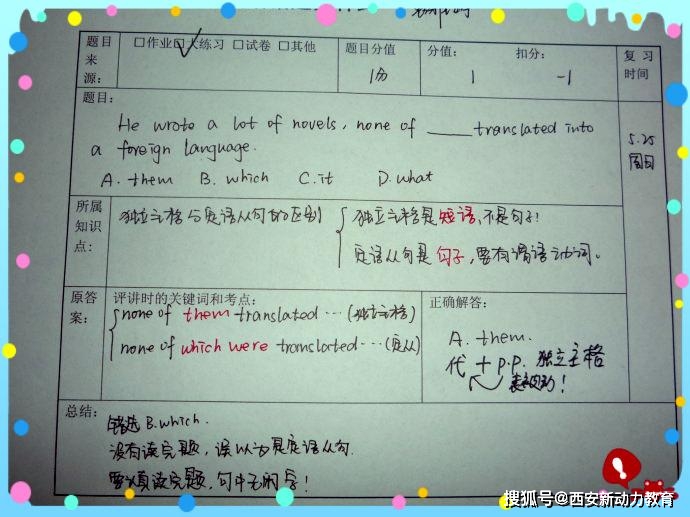 题目来源:
□作业 □大练习 □试卷 □其他
题目分值
1分
分值:
1
扣分:
-1
复习时间
5.25
周日
题目:
He wrote a lot of novels, none of ____ translated into
a foreign language.
A. them B. which C. it D. what
所属知识点:
独立主格与定语从句的区别
独立主格是短语,不是句子!
定语从句是句子,要有谓语动词。
原答案:
评讲时的关键词和考点:
none of them translated …(独立主格)
none of which were translated …(定从)
正确解答:
A. them.
代 + p.p. 独立主格
表被动!
总结:
错选 B. which.
没有读完题,误以为是定语从句.
要认真读完题,句中无的导!
搜狐号@西安新动力教育